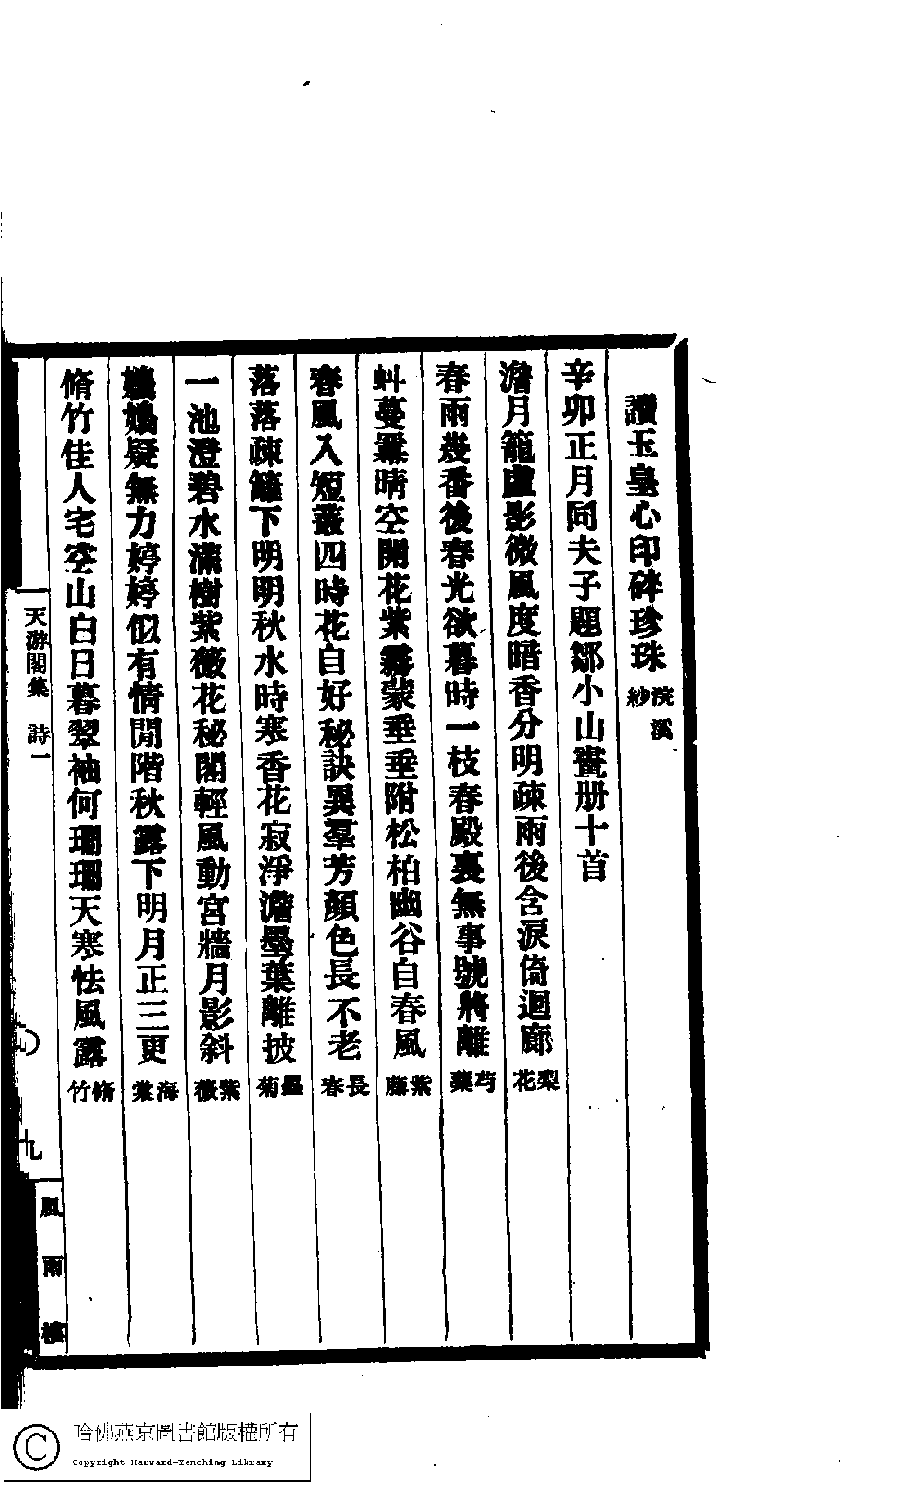 讀玉皇心印碎珍珠浣溪紗
辛卯正月同夫子題鄒小山畫册十首
澹月籠虛影微風度暗香分明疎雨後含淚倚迴廊梨花
春雨幾番後春光欲暮時一枝春殿裏無事號將離芍藥
虯蔓羃晴空開花紫霧蒙垂垂附松柏幽谷自春風紫藤
春風入短叢四時花自好秘訣異羣芳顏色長不老長春
落落疎籬下明明秋水時寒香花寂淨澹墨葉離披墨菊
一池澄碧水滿樹紫薇花秘閣輕風動宮牆月影斜紫薇
嬝嬝疑無力婷婷似有情閒階秋露下明月正三更海棠
脩竹佳人宅空山白日暮翠袖何珊珊天寒怯風露脩竹
天游閣集 詩一
九
風雨樓
哈佛燕京圖書館版權所有
Copyright Harvard-Yenching Library